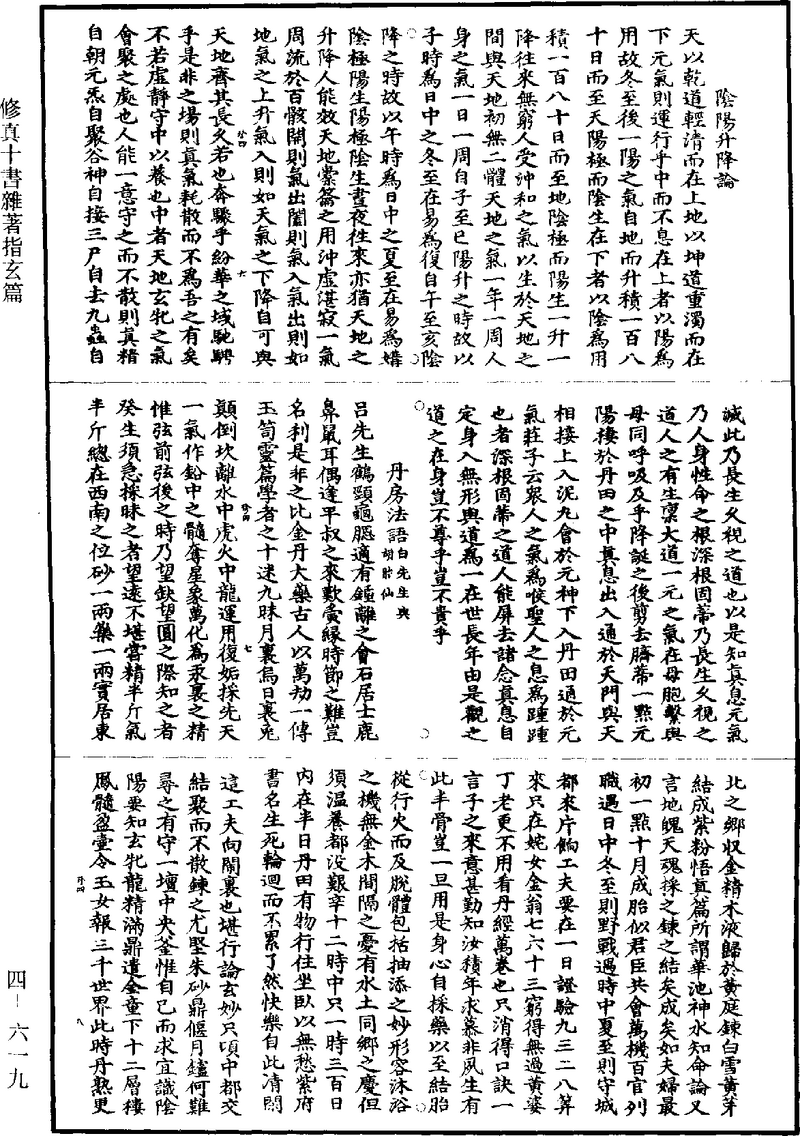 陰陽升降論
天以乾道輕清而在上地以坤道重濁而在
下元氣則運行乎中而不息在上者以陽爲
用故冬至後一陽之氣自地而升積一百八
十日而至天陽極而陰生在下者以陰爲用
積一百八十日而至地陰極而陽生一升一
降往來無窮人受沖和之氣以生於天地之
間與天地初無二體天地之氣一年一周人
身之氣一日一周自子至巳陽升之時故以
子時爲日中之冬至在易爲復自午至亥陰
降之時故以午時爲日中之夏至在易爲姤
陰極陽生陽極陰生晝夜往來亦猶天地之
升降人能效天地橐籥之用沖虛湛寂一氣
周流於百骸開則氣出闔則氣入氣出則如
地氣之上升氣入則如天氣之下降自可與
天地齊其長久若也奔驟乎紛華之域馳騁
乎是非之場則真氣耗散而不爲吾之有矣
不若虛靜守中以養也中者天地玄牝之氣
會聚之處也人能一意守之而不散則真精
自朝元炁自聚谷神自接三尸自去九蟲自
滅此乃長生久視之道也以是知真息元氣
乃人身性命之根深根固蒂乃長生久視之
道人之有生稟大道一元之氣在母胞繫與
母同呼吸及乎降誕之後剪去臍蒂一點元
陽棲於丹田之中其息出入通於天門與天
相接上入泥丸會於元神下入丹田通於元
氣莊子云衆人之氣爲喉聖人之息爲踵踵
也者深根固蒂之道人能屏去諸念真息自
定身入無形與道爲一在世長年由是觀之
道之在身豈不尊乎豈不貴乎
丹房法語白先生與胡胎仙
吕先生鶴頸龜腮適有鍾離之會石居士鹿
鼻鼠耳偶逢平叔之來歎夤緣時節之難豈
名利是非之比金丹大藥古人以萬劫一傳
玉笥靈篇學者之十迷九昧月裏烏日裏兔
顛倒坎離水中虎火中龍運用復姤採先天
一氣作鉛中之髓奪星象萬化爲汞裏之精
惟弦前弦後之時乃望缺望圓之際知之者
癸生須急採昧之者望遠不堪嘗精半斤氣
半斤總在西南之位砂一兩藥一兩實居東
北之鄉収金精木液歸於黃庭鍊白雪黃芽
結成紫粉悟真篇所謂華池神水知命論又
言地魄天魂採之鍊之結矣成矣如夫婦最
初一點十月成胎似君臣共會萬機百官列
職遇日中冬至則野戰遇時中夏至則守城
都來片餉工夫要在一日證驗九三二八筭
來只在姹女金翁七六十三窮得無過黃婆
丁老更不用看丹經萬卷也只消得口訣一
言子之來意甚勤知汝積年求慕非夙生有
此半骨豈一旦用是身心自採藥以至結胎
從行火而及脫體包括抽添之妙形容沐浴
之機無金木間隔之憂有水土同鄉之慶但
須温養都没艱辛十二時中只一時三百日
内在半日丹田有物行住坐臥以無愁紫府
書名生死輪迴而不累了然快樂自此清閑
這工夫向鬧裏也堪行論玄妙只頃中都交
結聚而不散鍊之尤堅朱砂鼎偃月鑪何難
尋之有守一壇中央釜惟自己而求宜識陰
陽要知玄牝龍精滿鼎遣金童下十二層樓
鳳髓盈壷令玉女報三千世界此時丹熟更
修真十書雜著指玄篇
四-六一九